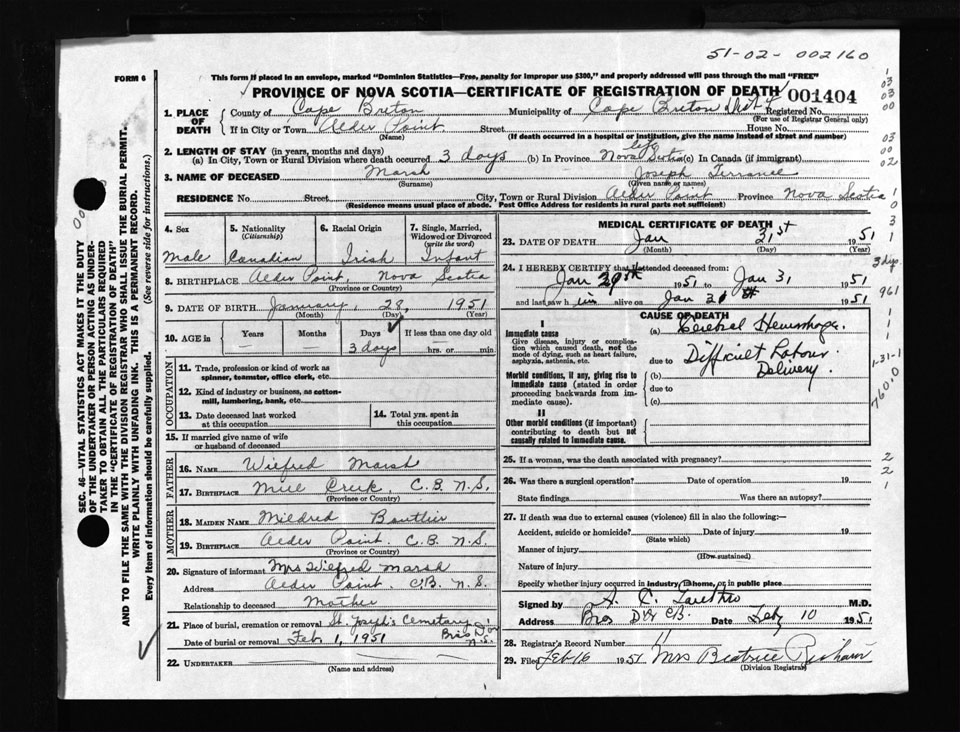 51-02-002160
FORM 6
This form if placed in an envelope, marked "Dominion Statistics—Free, penalty for improper use $300," and properly addressed will pass through the mail "FREE"
PROVINCE OF NOVA SCOTIA—CERTIFICATE OF REGISTRATION OF DEATH 001404
1. PLACE OF DEATH County of Cape Breton Municipality of Cape Breton Registered No.
(For use of Registrar General only)
If in City or Town Alder Point Street House No.
(Name) (If death occurred in a hospital or institution, give the name instead of street and number)
2. LENGTH OF STAY (in years, months and days)
(a) In City, Town or Rural Division where death occurred 3 days (b) In Province life Nova Scotia (c) In Canada (if immigrant)
3. NAME OF DECEASED Marsh Joseph Terrance
(Surname) (Given name or names)
RESIDENCE No. Street City, Town or Rural Division Alder Point Province Nova Scotia
(Residence means usual place of abode. Post Office Address for residents in rural parts not sufficient)
4. Sex Male
5. Nationality (Citizenship) Canadian
6. Racial Origin Irish
7. Single, Married, Widowed or Divorced (write the word) Infant
8. BIRTHPLACE Alder Point, Nova Scotia
(Province or Country)
9. DATE OF BIRTH January, 28, 1951
(Month) (Day) (Year)
10. AGE in Years — Months — Days 3 days If less than one day old hrs. or min.
OCCUPATION
11. Trade, profession or kind of work as spinner, teamster, office clerk, etc.
12. Kind of industry or business, as cotton-mill, lumbering, bank, etc.
13. Date deceased last worked at this occupation
14. Total yrs. spent in this occupation
15. If married give name of wife or husband of deceased
FATHER
16. NAME Wilfred Marsh
17. BIRTHPLACE Mill Creek, C.B. N.S.
(Province or Country)
MOTHER
18. MAIDEN NAME Mildred Boutlier
19. BIRTHPLACE Alder Point. C.B. N.S.
(Province or Country)
20. Signature of informant Mrs Wilfred Marsh
Address Alder Point. C.B. N.S.
Relationship to deceased Mother
21. Place of burial, cremation or removal St. Joseph's Cemetary N.S.
Date of burial or removal Feb 1, 1951
22. UNDERTAKER
(Name and address)
MEDICAL CERTIFICATE OF DEATH
23. DATE OF DEATH Jan 31st 1951
(Month) (Day) (Year)
24. I HEREBY CERTIFY that I attended deceased from:
Jan 29th 1951 to Jan 31 1951
and last saw him alive on Jan 1951
CAUSE OF DEATH
I
Immediate cause
Give disease, injury or complication which caused death, not the mode of dying, such as heart failure, asphyxia, asthenia, etc.
(a) Cerebral Hemorrhage.
due to
Morbid conditions, if any, giving rise to immediate cause (stated in order proceeding backwards from immediate cause).
(b) Difficult Labour Delivery
due to
(c)
II
Other morbid conditions (if important) contributing to death but not causally related to immediate cause.
25. If a woman, was the death associated with pregnancy?
26. Was there a surgical operation? Date of operation 19
State findings Was there an autopsy?
27. If death was due to external causes (violence) fill in also the following:—
Accident, suicide or homicide? Date of injury 19
(State which)
Manner of injury
(How sustained)
Nature of injury
Specify whether injury occurred in industry, in home, or in public place
Signed by A. C. M.D.
Address Bras D'Or C.B. Date Feby 10 1951
28. Registrar's Record Number
29. Filed Feb 16 1951 Mrs Beatrice
(Division Registrar)
SEC. 46—VITAL STATISTICS ACT MAKES IT THE DUTY
OF THE UNDERTAKER OR PERSON ACTING AS UNDER-
TAKER TO OBTAIN ALL THE PARTICULARS REQUIRED
IN THE "CERTIFICATE OF REGISTRATION OF DEATH"
AND TO FILE THE SAME WITH THE DIVISION REGISTRAR WHO SHALL ISSUE THE BURIAL PERMIT.
WRITE PLAINLY WITH UNFADING INK. THIS IS A PERMANENT RECORD.
Every item of information should be carefully supplied. (See reverse side for instructions.)
1
03
03
00
03
00
02
3 dys.
961
1-31-1
760.0
2
2
1